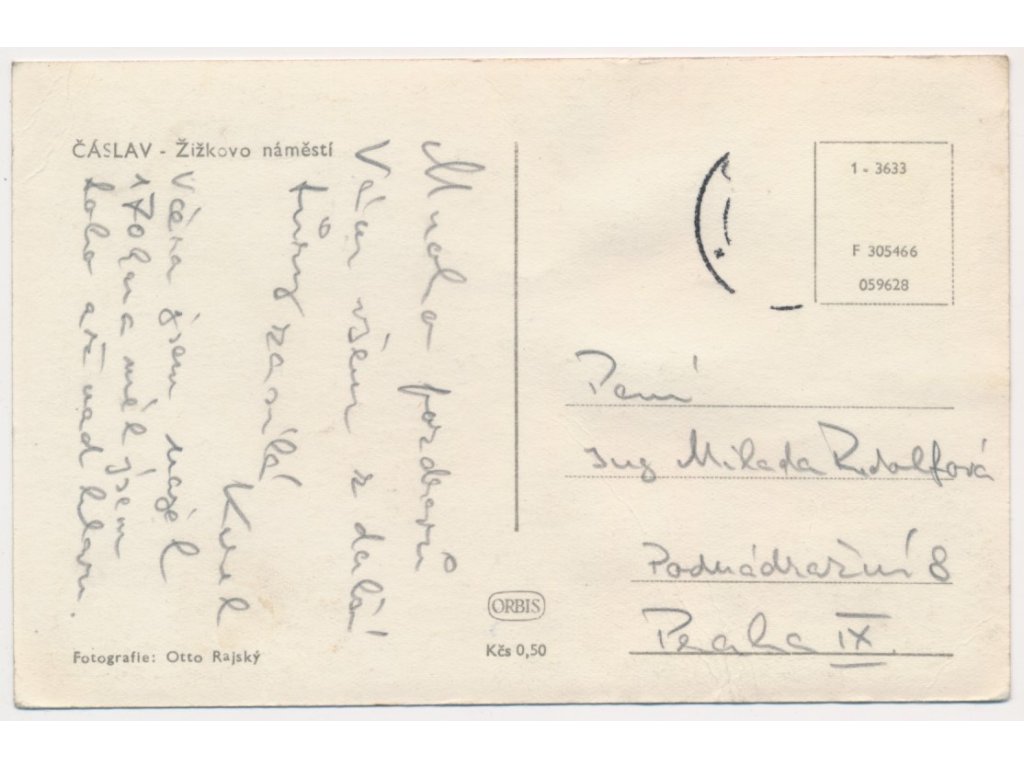 ČÁSLAV - Žižkovo náměstí
Mnoho pozdravů
Vám všem z další
túry zasílá
Karel
Včera jsem najel
170km a měl jsem
toho až nad hlavu.
Fotografie: Otto Rajský
ORBIS
Kčs 0,50
1 - 3633
F 305466
059628
Paní
Ing Milada Rudolfová
Podnádražní 8
Praha IX.